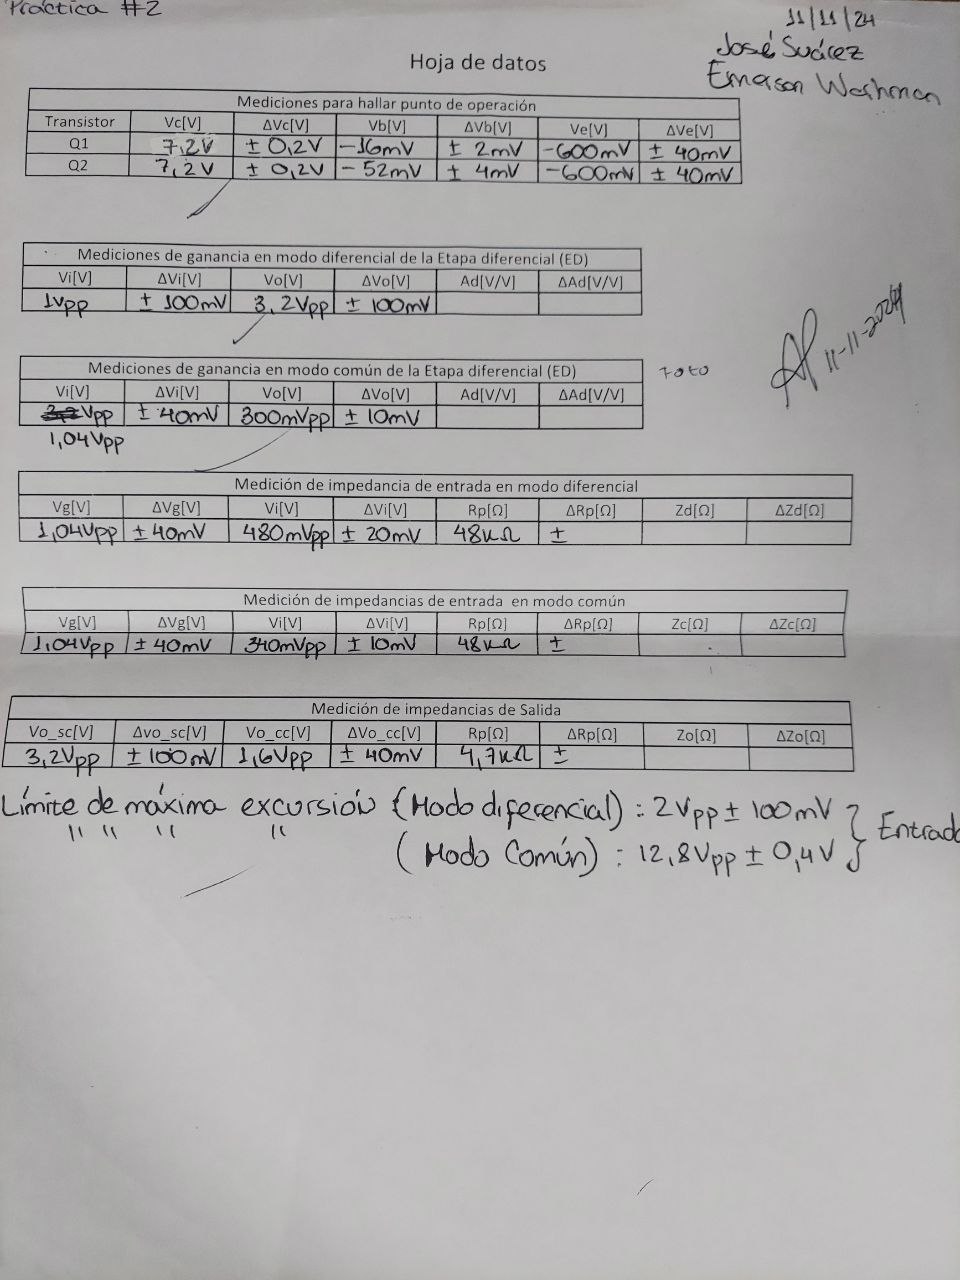 Práctica #2
11/11/24
José Suárez
Emerson Washman
Hoja de datos
Mediciones para hallar punto de operación
Transistor Vc[V] ΔVc[V] Vb[V] ΔVb[V] Ve[V] ΔVe[V]
Q1 7,2V ± 0,2V -16mV ± 2mV -600mV ± 40mV
Q2 7,2V ± 0,2V - 52mV ± 4mV -600mV ± 40mV
Mediciones de ganancia en modo diferencial de la Etapa diferencial (ED)
Vi[V] ΔVi[V] Vo[V] ΔVo[V] Ad[V/V] ΔAd[V/V]
1Vpp ± 100mV 3,2Vpp ± 100mV
11-11-2024
Mediciones de ganancia en modo común de la Etapa diferencial (ED)
Foto
Vi[V] ΔVi[V] Vo[V] ΔVo[V] Ad[V/V] ΔAd[V/V]
Vpp ± 40mV 300mVpp ± 10mV
1,04Vpp
Medición de impedancia de entrada en modo diferencial
Vg[V] ΔVg[V] Vi[V] ΔVi[V] Rp[Ω] ΔRp[Ω] Zd[Ω] ΔZd[Ω]
1,04Vpp ± 40mV 480mVpp ± 20mV 48kΩ ±
Medición de impedancias de entrada en modo común
Vg[V] ΔVg[V] Vi[V] ΔVi[V] Rp[Ω] ΔRp[Ω] Zc[Ω] ΔZc[Ω]
1,04Vpp ± 40mV 340mVpp ± 10mV 48kΩ ±
Medición de impedancias de Salida
Vo_sc[V] Δvo_sc[V] Vo_cc[V] ΔVo_cc[V] Rp[Ω] ΔRp[Ω] Zo[Ω] ΔZo[Ω]
3,2Vpp ± 100mV 1,6Vpp ± 40mV 4,7kΩ ±
Límite de máxima excursión (Modo diferencial) : 2Vpp ± 100mV } Entrada
" " " " (Modo Común) : 12,8Vpp ± 0,4V